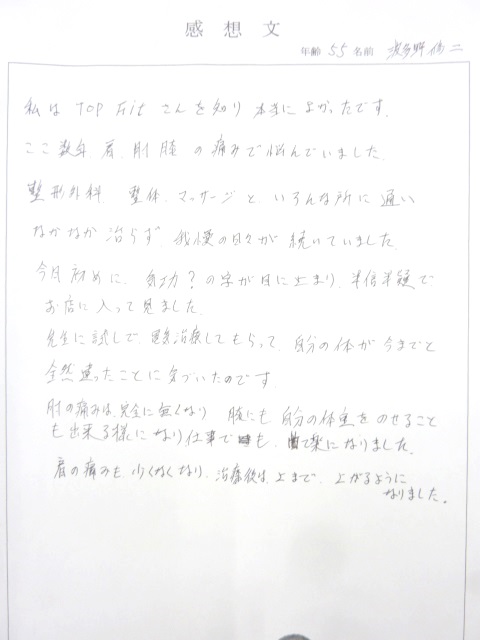 感想文
年齢 55 名前 波多野 侑二
私は TOP Fit さんを知り 本当に よかったです.
ここ数年. 肩. 肘 膝 の 痛みで 悩んでいました.
整形外科. 整体. マッサージ と. いろんな所に 通い
なかなか 治らず. 我慢の日々が 続いていました.
今月 初めに. 気功? の字が目に止まり. 半信半疑で
お店に 入って 見ました.
先生に 試しで. 治療してもらって. 自分の体が 今までと
全然 違ったことに 気づいたのです
肘の痛みは. 完全に 無くなり 膝にも 自分の体重を のせること
も 出来る様に なり 仕事で も. 楽になりました.
肩の痛みも. 少くなくなり. 治療後は. 上まで. 上がるように
なりました.